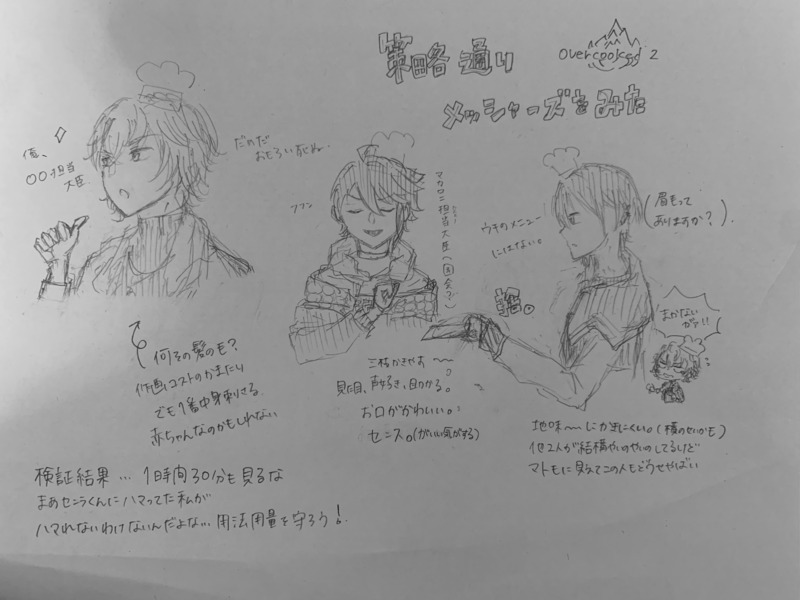 策略通り
overcooked 2
メッシャーズをみた
俺、
〇〇担当
大臣
だめだ
おもろい
フフン
マカロニ担当大臣(国会?)
ウチのメニュー
にはない。
(眉毛って
ありますか?).
捨。
まかない
がァ!!
何その髪のモ?
作画コストのかまたり
でも1番中身刺さる
赤ちゃんなのかもしれない
三枝かきやす〜〜
見た目、声好き、目かかる。
お口がかわいい。
センス。(がいい気がする)
地味〜にかきにくい。(横のせいかも)
他2人が結構やいのやいのしてるけど
マトモに見えてこの人もどうせやばい
検証結果…1日時間30分も見るな
まあセンラくんにハマってた私が
ハマれないわけないんだよな… 用法用量を守ろう!